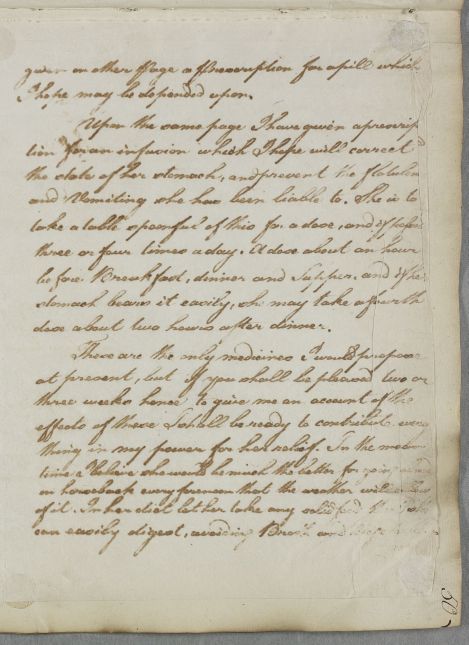 given on other Page a Prescription for a pill which
I hope may be depended upon.
Upon the same page I have given a prescrip
tion for an infusion which I hope will correct
the state of her stomach, and prevent the flatulen
and Vomiting she has been liable to. She is to
take a table spoonful of this for a dose, and if
three or four times a day. A dose about an hour
before Breakfast, dinner and Supper and if her
stomach bears it easily, she may take a fourth
dose about two hours after dinner.
These are the only medicines I would propose
at present, but if you shall be pleased two or
three weeks hence to give me an account of the
effects of these I shall be ready to contribute every
thing in my power for her relief. In the mean
time I believe she would be much the better for
on horseback every forenoon that the weather will
of it. In her diet let her take any solid food
can easily digest, avoiding Broth and